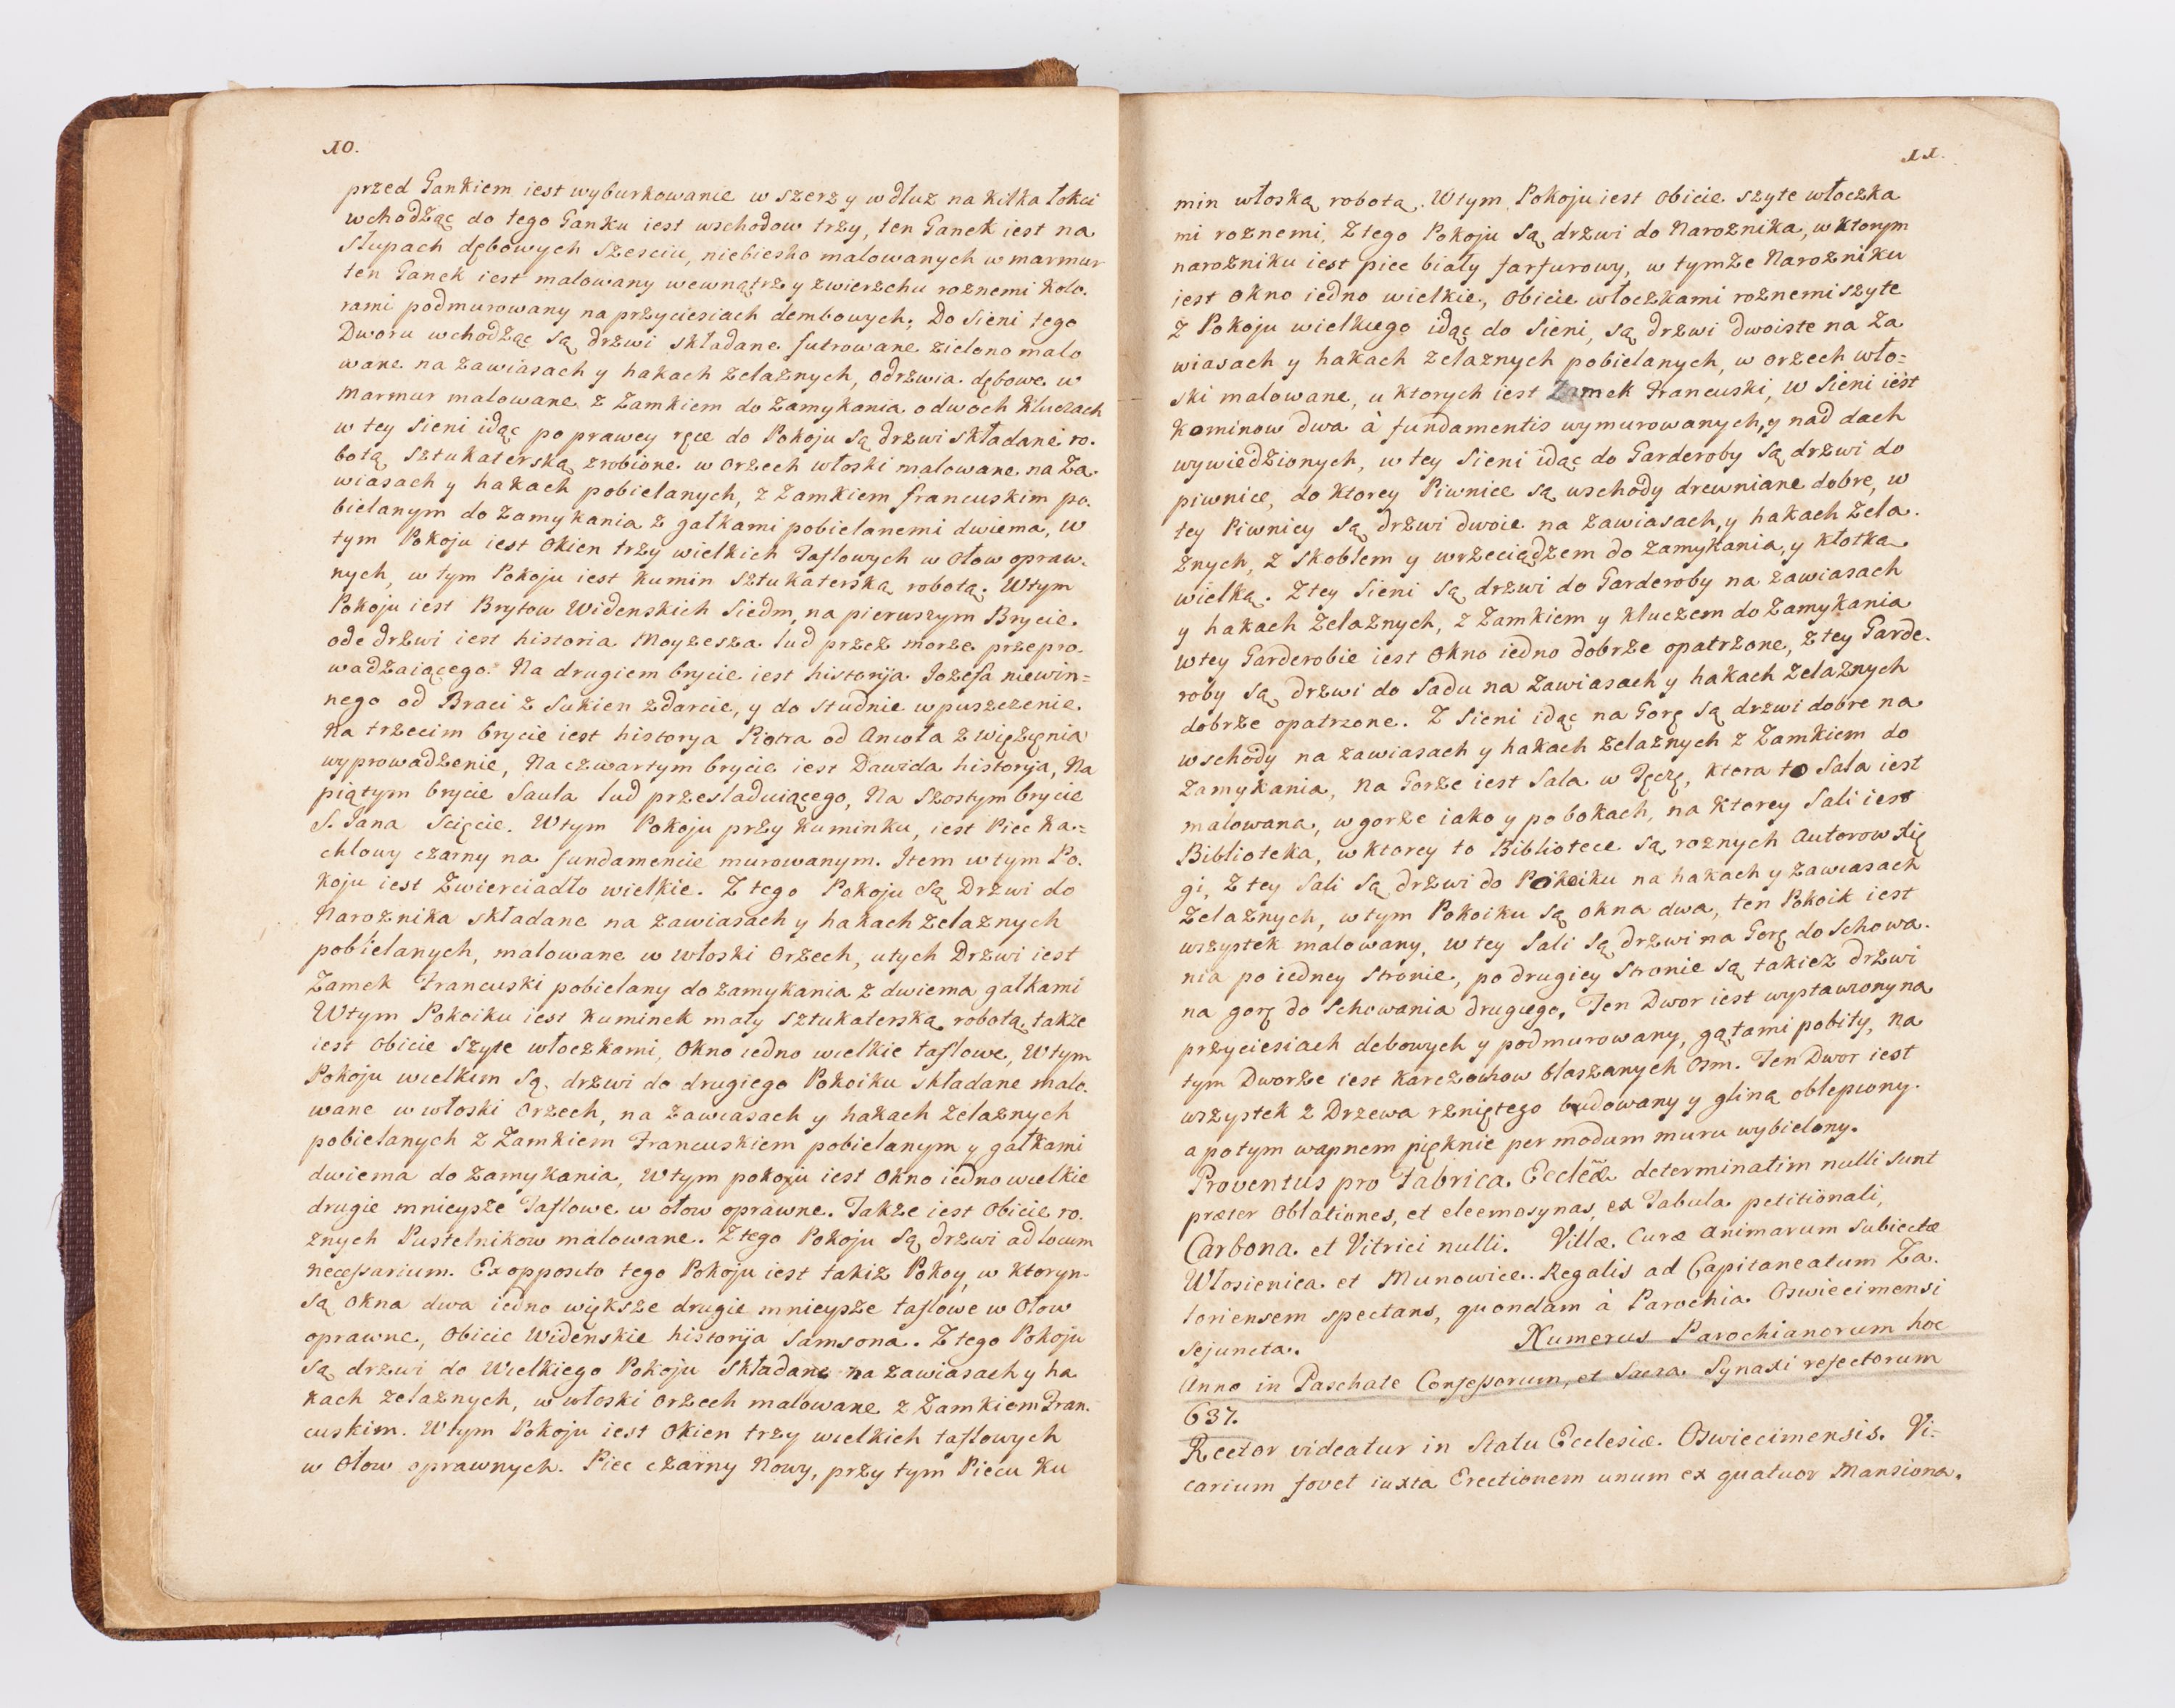 10.
przed Gankiem iest wyburkowanie w szerz y w dłuz na kilka łokci
wchodząc do tego Ganku iest wschodow trzy, ten Ganek iest na
słupach dębowych szesciu, niebiesko malowanych w marmur
ten Ganek iest malowany wewnątrz y zwierzchu roznemi kolo.
rami podmurowany na przyciesiach dembowych. Do Sieni tego
Dworu wchodząc są drzwi składane futrowane zielono malo
wane na zawiasach y hakach zelaznych, odrzwia dębowe w
marmur malowane z Zamkiem do Zamykania o dwoch Kluczach
w tey Sieni idąc po prawey ręce do Pokoju są drzwi składane ro.
botą sztukaterską zrobione w orzech włoski malowane na Za.
wiasach y hakach pobielanych, z Zamkiem francuskim po.
bielanym do zamykania z gałkami pobielanemi dwiema, w
tym Pokoju iest Okien trzy wielkich Taflowych w ołow opraw.
nych, w tym Pokoju iest Kumin sztukaterską robotą. W tym
Pokoju iest Brytow Widenskich Siedm, na pierwszym Brycie.
ode drzwi iest historia Moyzesza lud przez morze przepro.
wadzaiącego. Na drugiem brycie iest historyja Iozefa niewin=
nego od Braci z Sukien zdarcie, y do studnie wpuszczenie.
Na trzecim brycie iest historya Piotra od Anioła z więzięnia
wyprowadzenie, Na czwartym brycie iest Dawida historyja, Na
piątym brycie Saula lud przesladuiącego, Na szostym brycie
S. Jana Scięcie. W tym Pokoju przy Kuminku, iest Piec Ka=
chlowy czarny na fundamencie murowanym. Item w tym Po.
koju iest Zwierciadło wielkie. Z tego Pokoju są Drzwi do
Naroznika składane na zawiasach y hakach zelaznych
pobielanych, malowane w włoski Orzech, u tych Drzwi iest
Zamek Francuski pobielany do zamykania z dwiema gałkami
W tym Pokoiku iest Kuminek mały sztukaterską robotą, takze
iest obicie szyte włoczkami, Okno iedno wielkie taflowe, W tym
Pokoju wielkim są drzwi do drugiego Pokoiku składane malo.
wane w włoski Orzech, na zawiasach y hakach zelaznych
pobielanych z Zamkiem Francuskiem pobielanym y gałkami
dwiema do zamykania, W tym pokoju iest Okno iedno wielkie
drugie mnieysze Taflowe w ołow oprawne. Takze iest Obicie ro.
znych Pustelnikow malowane. Z tego Pokoju są drzwi ad locum
necessarium. Ex opposito tego Pokoju iest takiz Pokoy, w ktorym
są Okna dwa iedno większe drugie mnieysze taflowe w Ołow
oprawne, Obicie Widenskie historyja Samsona. Z tego Pokoju
są drzwi do Wielkiego Pokoju składane na zawiasach y ha
kach zelaznych, w włoski orzech malowane z Zamkiem Fran.
cuskim. W tym Pokoju iest Okien trzy wielkich taflowych
w Ołow oprawnych. Piec czarny Nowy, przy tym Piecu Ku
11.
min włoską robotą. W tym Pokoju iest Obicie szyte włoczka
mi roznemi, Z tego Pokoju są drzwi do Naroznika, w ktorym
narozniku iest piec biały farfurowy, w tymze Narozniku
iest Okno iedno wielkie, Obicie włoczkami roznemi szyte
z Pokoju wielkiego idąc do Sieni, są drzwi dwoiste na Za
wiasach y hakach zelaznych pobielanych, w orzech wło=
ski malowane, u ktorych iest Zamek Francuski, W Sieni iest
Kominow dwa à fundamentis wymurowanych, y nad dach
wywiedzionych, w tey Sieni idąc do Garderoby są drzwi do
piwnice, do ktorey Piwnice są wschody drewniane dobre, w
tey Piwnicy są drzwi dwoie na zawiasach, y hakach zela.
znych, z skoblem y wrzeciądzem do zamykania, y kłotka
wielką. Z tey Sieni są drzwi do Garderoby na zawiasach
y hakach Zelaznych, z Zamkiem y kluczem do Zamykania
w tey Garderobie iest Okno iedno dobrze opatrzone, z tey Garde.
roby są drzwi do Sadu na Zawiasach y hakach Zelaznych
dobrze opatrzone. Z Sieni idąc na Gorę są drzwi dobre na
wschody na zawiasach y hakach zelaznych z Zamkiem do
Zamykania, na Gorze iest Sala w Tęczę, ktora to Sala iest
malowana, w gorze iako y po bokach, na ktorey Sali iest
Biblioteka, w ktorey to Bibliotece są roznych Autorow Xię
gi, Z tey Sali są drzwi do Pokoiku na hakach y Zawiasach
zelaznych, w tym Pokoiku są okna dwa, ten Pokoik iest
wszystek malowany, w tey Sali są drzwi na Gorę do Schowa.
nia po iedney stronie, po drugiey stronie są takiez drzwi
na gorę do Schowania drugiego, Ten Dwor iest wystawiony na
przyciesiach debowych y podmurowany, gątami pobity, na
tym Dworze iest karczochow blaszanych Osm. Ten Dwor iest
wszystek z Drzewa rzniętego budowany y gliną oblepiony.
a potym wapnem pięknie per modum muru wybielony.
Proventus pro Fabrica Eccleæ determinatim nulli sunt
præter Oblationes, et eleemosynas, ex Tabula petitionali,
Carbona et Vitrici nulli. Villæ Curæ Animarum Subiectæ
Włosienica et Munowice. Regalis ad Capitaneatum Za.
toriensem spectans, quondam à Parochia Oswiecimensi
Sejuncta. Numerus Parochianorum hoc
Anno in Paschate Confessorum, et Sacra Synaxi refectorum
637.
Rector videatur in Statu Ecclesiæ Oswiecimensis. Vi=
carium fovet iuxta Erectionem unum ex quatuor Mansiona.